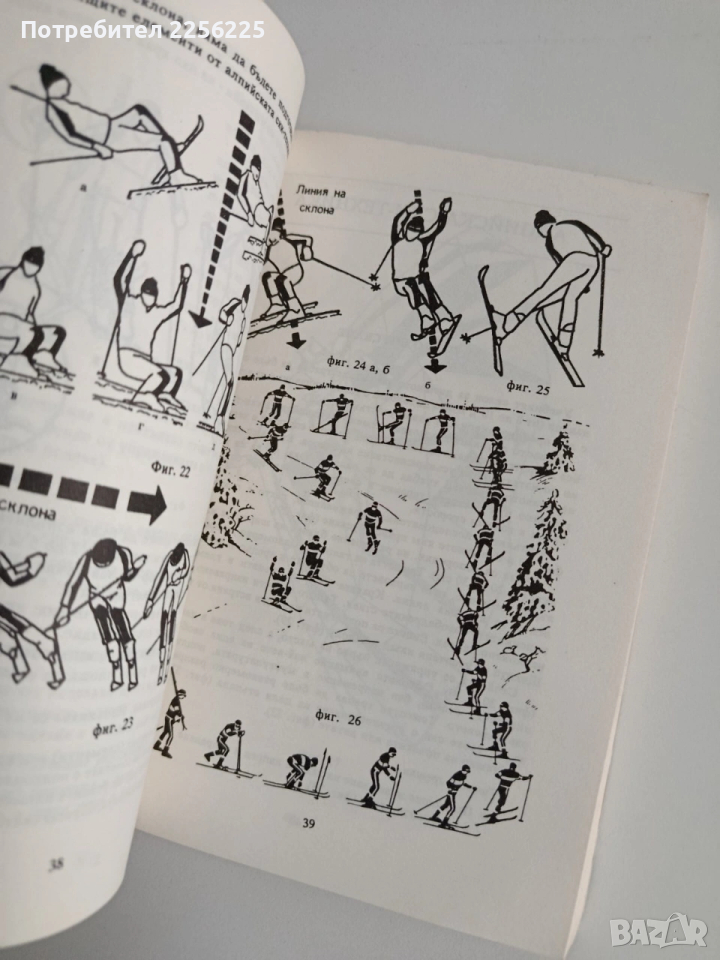 Потребител 2256225
склона,
да бъдете
от алпийската
а
в
г
Фиг. 22
склона
фиг. 23
38
Линия на
склона
а
фиг. 24 а, б
б
фиг. 25
фиг. 26
39
BAZAR